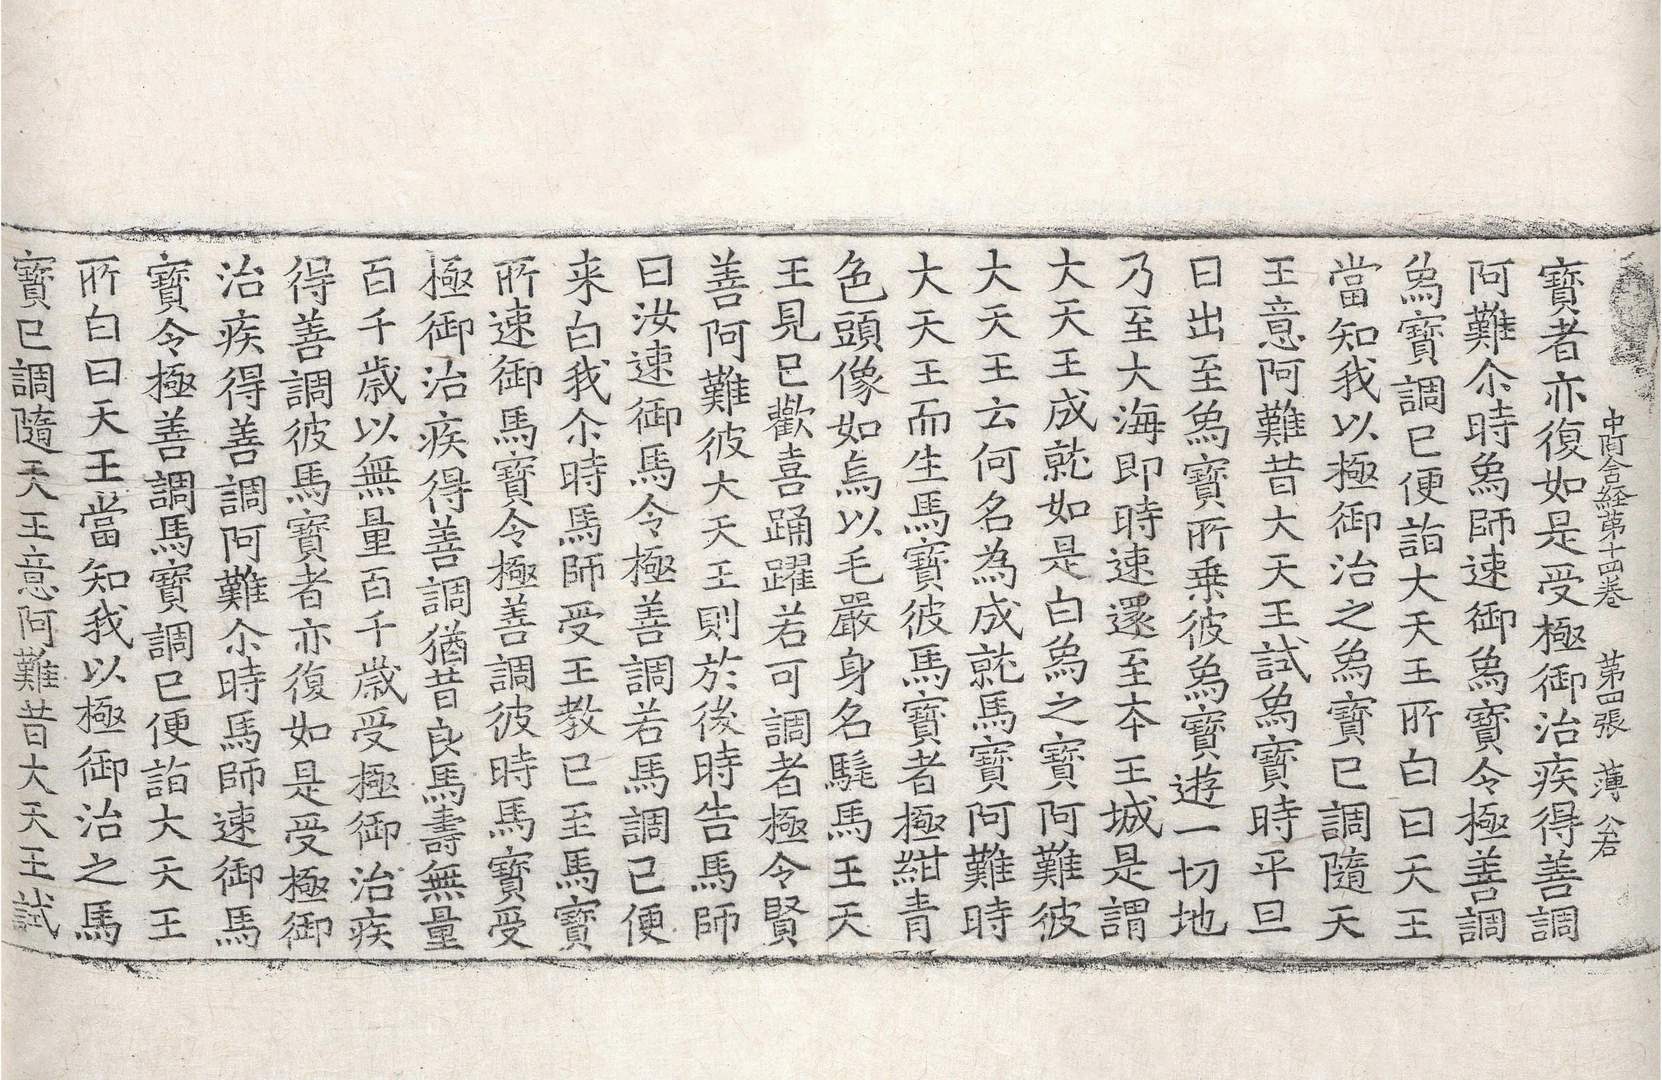 中阿含経第十四巻 第四張 薄 公若
寶者亦復如是受極御治疾得善調
阿難尒時象師速御象寶令極善調
象寶調已便詣大天王所白曰天王
當知我以極御治之象寶已調隨天
王意阿難昔大天王試象寶時平旦
日出至象寶所乗彼象寶遊一切地
乃至大海即時速還至夲王城是謂
大天王成就如是白象之寶阿難彼
大天王云何名為成就馬寶阿難時
大天王而生馬寶彼馬寶者極紺青
色頭像如烏以毛嚴身名髦馬王天
王見已歡喜踊躍若可調者極令賢
善阿難彼大天王則於後時告馬師
曰汝速御馬令極善調若馬調已便
来白我尒時馬師受王教已至馬寶
所速御馬寶令極善調彼時馬寶受
極御治疾得善調猶昔良馬壽無量
百千歳以無量百千歳受極御治疾
得善調彼馬寶者亦復如是受極御
治疾得善調阿難尒時馬師速御馬
寶令極善調馬寶調已便詣大天王
所白曰天王當知我以極御治之馬
寶已調隨天王意阿難昔大天王試